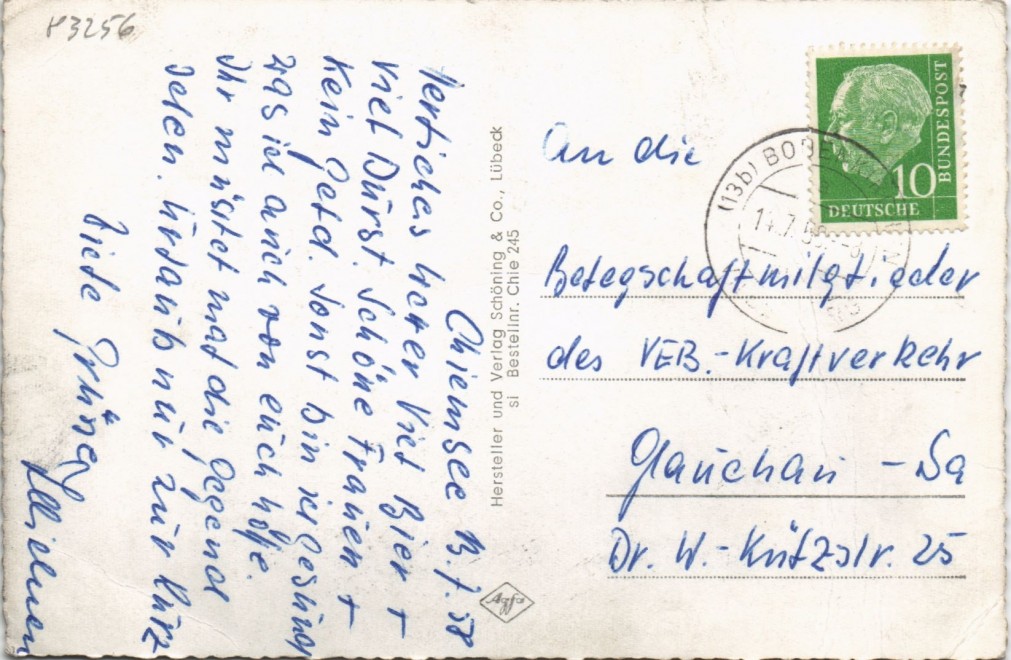 83256
Chiemsee 13.7.58
Herrliches Wetter Viel Bier +
Viel Durst. Schöne Frauen +
Kein Geld. Sonst bin ich gesund
was ich auch von euch hoffe.
Ihr müsstet mal die Gegend
sehen. Urlaub nur zu kurz
Viele Grüße
Hersteller und Verlag Schöning & Co., Lübeck
si Bestellnr. Chie 245
Agfa
DEUTSCHE
BUNDESPOST
10
(13b)
An die
Belegschaftmitglieder
des VEB.-Kraftverkehr
Glauchau - Sa
Dr. W.-Külzstr. 25